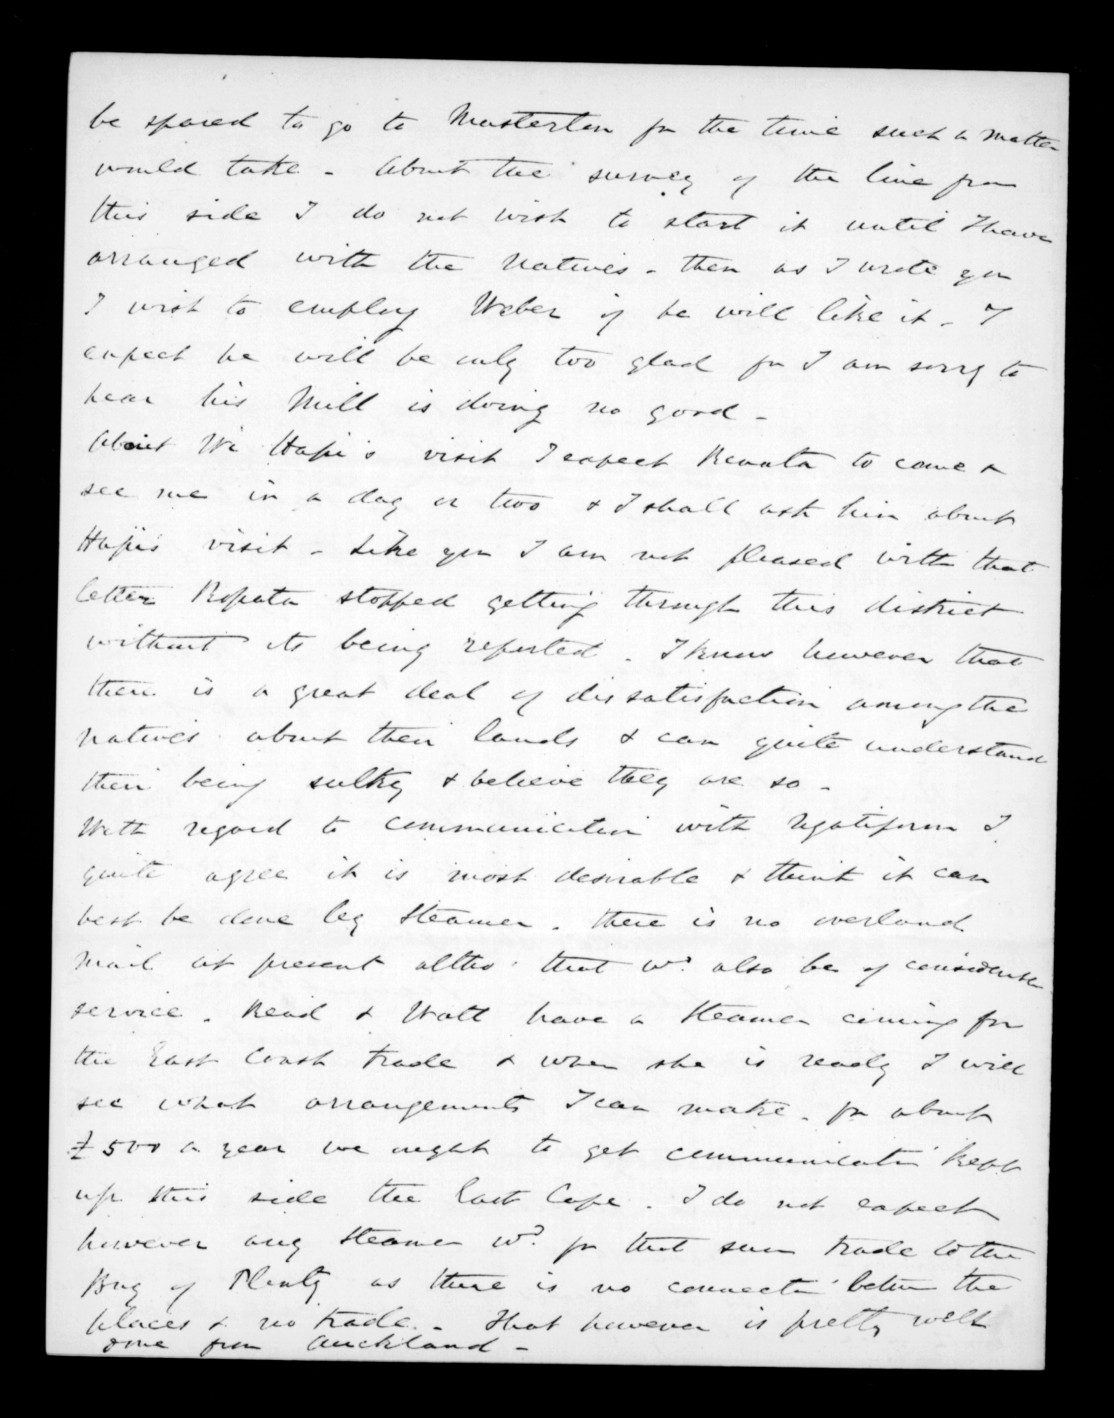 be spared to go to Masterton for the time such a matter
would take - About the survey of the line from
this side I do not wish to start it until I have
arranged with the Natives - then as I wrote you
I wish to employ Weber if he will like it - I
expect he will be only too glad for I am sorry to
hear his Mill is doing no good -
About Wi Hapi's visit I expect Renata to come &
see me in a day or two & I shall ask him about
Hapi's visit - Like you I am not pleased with that
letter Ropata stopped getting through this district
without its being reported. I know however that
there is a great deal of dissatisfaction among the
Natives about their lands & can quite understand
their being sulky & believe they are so -
With regard to communication with Ngatiporou I
quite agree it is most desirable & think it can
best be done by Steamer. there is no overland
Mail at present altho' that wd. also be of
service. Read & Watt have a Steamer coming for
the East Coast trade & when she is ready I will
see what arrangements I can make. for about
£500 a year we ought to get communicatn kept
up this side the East Cape. I do not expect
however any Steamer wd. for that sum trade to the
Bay of Plenty as there is no connectn betwn the
places & no trade. - that however is pretty well
done from Auckland -